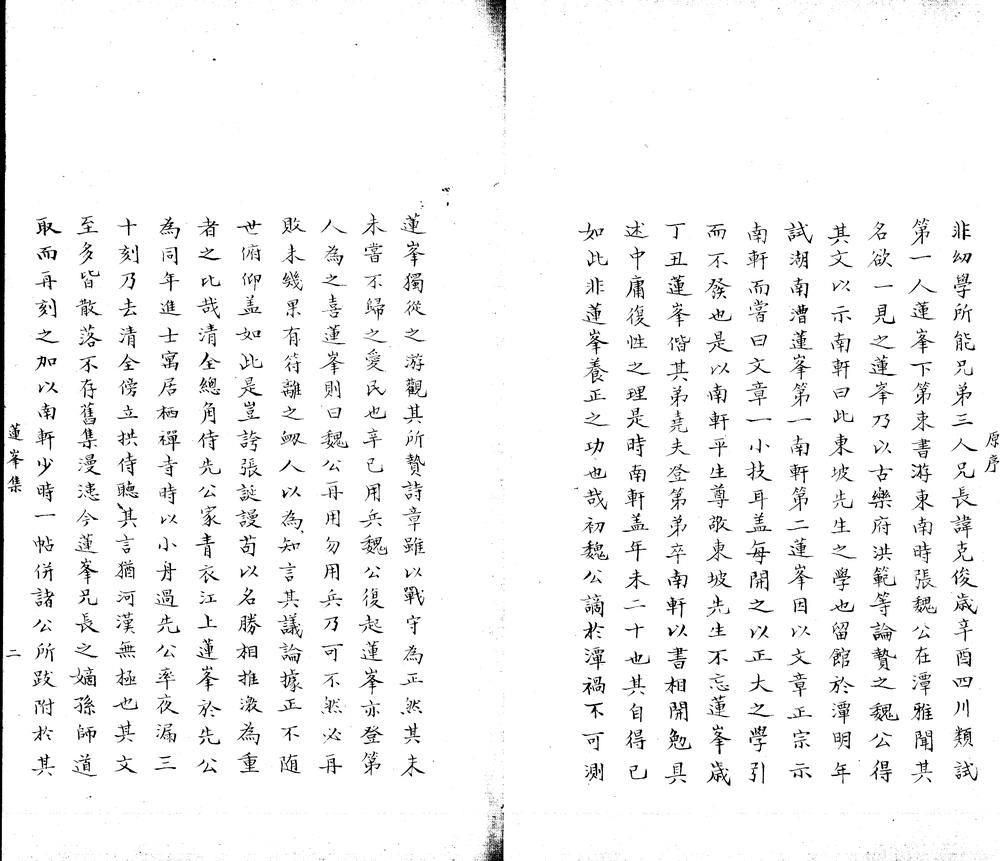 原序
非幼學所能兄弟三人兄長諱克俊歲辛酉四川類試
第一人蓮峯下第東書游東南時張魏公在潭雅聞其
名欲一見之蓮峯乃以古樂府洪範等論贄之魏公得
其文以示南軒曰此東坡先生之學也留館於潭明年
試湖南漕蓮峯第一南軒第二蓮峯因以文章正宗示
南軒而嘗曰文章一小技耳盖每開之以正大之學引
而不發也是以南軒平生尊敬東坡先生不忘蓮峯歲
丁丑蓮峯偕其弟堯夫登第弟卒南軒以書相開勉具
述中庸復性之理是時南軒盖年未二十也其自得已
如此非蓮峯養正之功也哉初魏公謫於潭禍不可測
蓮峯獨從之游觀其所贄詩章雖以戰守為正然其未
未嘗不歸之愛民也辛巳用兵魏公復起蓮峯亦登第
人為之喜蓮峯則曰魏公再用勿用兵乃可不然必再
敗未幾果有符離之衂人以為知言其議論據正不随
世俯仰盖如此是豈誇張誕謾苟以名勝相推激為重
者之比哉清全總角侍先公家青衣江上蓮峯於先公
為同年進士寓居栖禪寺時以小舟過先公率夜漏三
十刻乃去清全傍立拱侍聽其言猶河漢無極也其文
至多皆散落不存舊集漫漶今蓮峯兄長之嫡孫師道
取而再刻之加以南軒少時一帖併諸公所跋附於其
蓮峯集
二